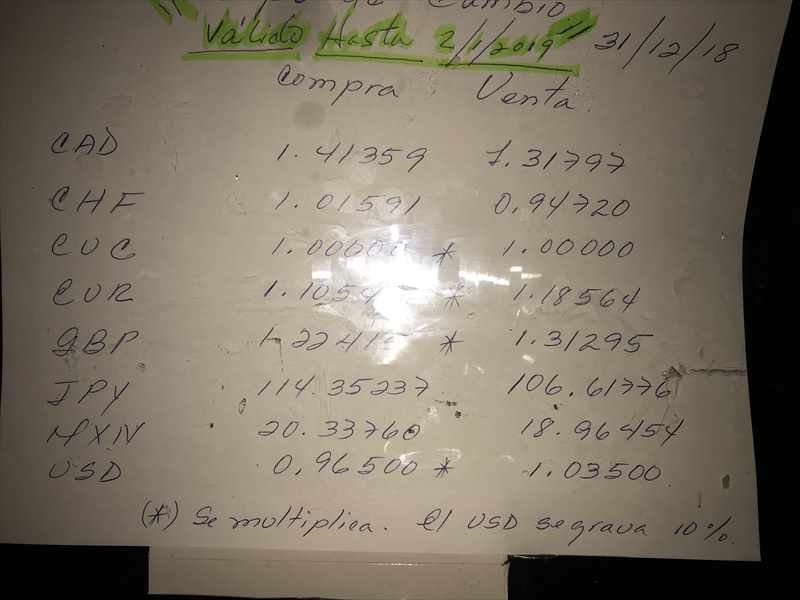 de Cambio
Válido Hasta 2/1/2019 31/12/18
Compra Venta
CAD 1.41359 1.31797
CHF 1.01591 0.94720
CUC 1.00000 * 1.00000
EUR * 1.18564
GBP * 1.31295
JPY 114.35237 106.61776
MXN 20.33760 18.96454
USD 0.96500 * 1.03500
(*) Se multiplica. El USD se grava 10%.